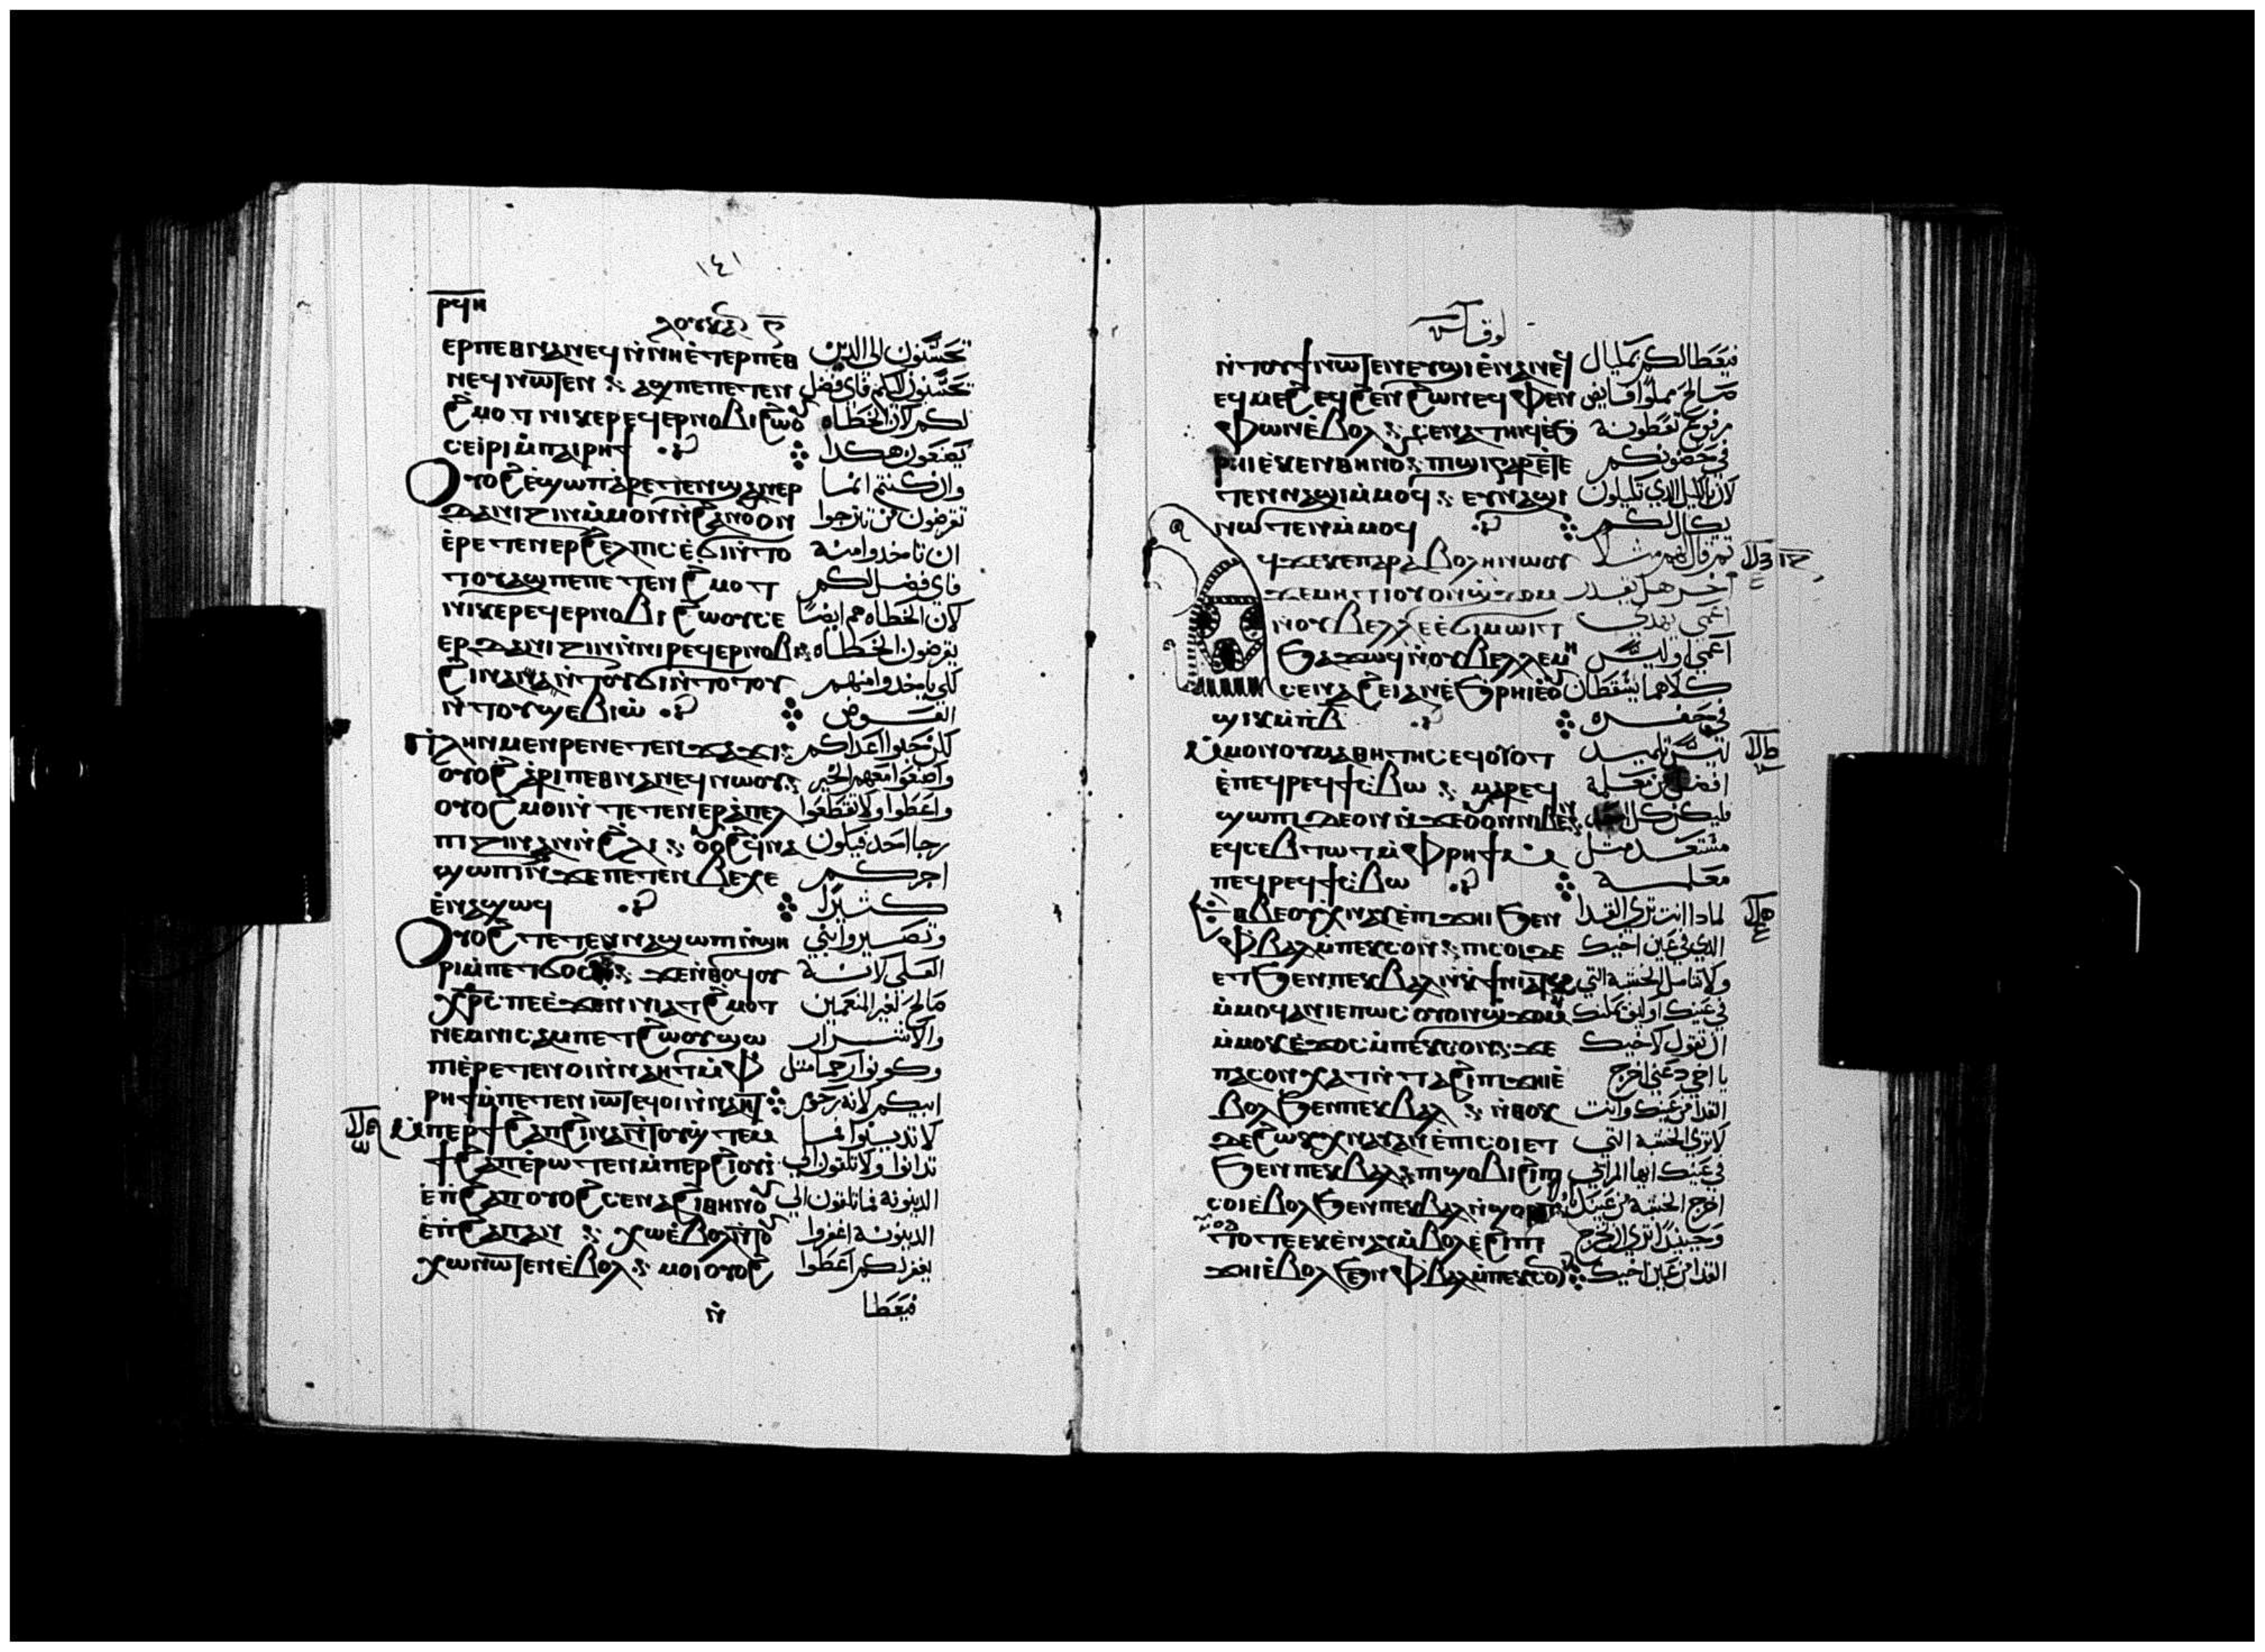 ١٤١
ⲣϥⲏ
ⲗⲟⲩⲕⲁⲥ
ⲉⲣⲡⲉⲑⲛⲁⲛⲉϥ ⲛ̀ⲛⲏⲉ̀ⲧⲉⲣⲡⲉⲑ تحسنون الى الدين
ⲛⲉϥ ⲛⲱⲧⲉⲛ ⁘ ⲁϣ ⲡⲉ ⲡⲉⲧⲉⲛ تحسنون اليكم فاي فضل
ϩ̀ⲙⲟⲧ ⲛⲓⲕⲉⲣⲉϥⲉⲣⲛⲟⲃⲓ ϩⲱⲟⲩ لكم لان الخطاه
ⲥⲉⲓ̀ⲣⲓ ⲙ̀ⲡⲁⲓⲣⲏϯ يصنعون هكدا
ⲟⲩⲟϩ ⲉ̀ϣⲱⲡ ⲁ̀ⲣⲉⲧⲉⲛϣⲁⲛⲉⲣ وان كنتم انما
ⲇⲁⲛⲓⲍⲓⲛ ⲙ̀ⲙⲟⲛ ⲛ̀ϩⲁⲛⲟⲩⲟⲛ تقرضون من ترجوا
ⲉ̀ⲣⲉⲧⲉⲛⲉⲣϩⲉⲗⲡⲓⲥ ⲉ̀ϭⲓ ⲛ̀ⲧⲟ ان تاخدوا منه
ⲧⲟⲩ ⲁϣ ⲡⲉ ⲡⲉⲧⲉⲛϩ̀ⲙⲟⲧ فاي فضل لكم
ⲛⲓⲕⲉⲣⲉϥⲉⲣⲛⲟⲃⲓ ϩⲱⲟⲩ ⲥⲉ لان الخطاه هم ايضا
ⲉⲣⲇⲁⲛⲓⲍⲓⲛ ⲛ̀ⲛⲓⲣⲉϥⲉⲣⲛⲟⲃⲓ يقرضون الخطاه
ϩⲓⲛⲁ ⲛ̀ⲧⲟⲩϭⲓ ⲛ̀ⲧⲟⲧⲟⲩ لكي ياخدوا منهم
ⲛ̀ⲧⲟⲩϣⲉⲃⲓⲱ̀ العوض
ⲡⲗⲏⲛ ⲙⲉⲛⲣⲉ ⲛⲉⲧⲉⲛϫⲁϫⲓ لكن حبوا اعداكم
ⲟⲩⲟϩ ⲁ̀ⲣⲓⲡⲉⲑⲛⲁⲛⲉϥ ⲛⲱⲟⲩ واصنعوا معهم الخير
ⲟⲩⲟϩ ⲙⲟⲓ ⲛ̀ⲧⲉⲧⲉⲛⲉⲣⲁ̀ⲡⲉⲗ واعطوا ولا تقطعوا
ⲡⲓⲍⲓⲛ ⲁⲛ ⲛ̀ϩⲗⲓ ⁘ ⲟⲩⲟϩ ⲉϥⲛⲁ رجا احد فيكون
ϣⲱⲡⲓ ⲛ̀ϫⲉ ⲡⲉⲧⲉⲛⲃⲉⲭⲉ اجركم
ⲉ̀ⲛⲁϣⲱϥ كثيرا
ⲟⲩⲟϩ ⲧⲉⲧⲉⲛⲛⲁϣⲱⲡⲓ ⲛ̀ϣⲏ وتصيروا بني
ⲣⲓ ⲙ̀ⲡⲉⲧϭⲟⲥⲓ ⁘ ϫⲉ ⲛ̀ⲑⲟϥ ⲟⲩ العلى لانه
ⲭ̅ⲣ̅ⲥ̅ ⲡⲉ ⲉ̀ϫⲉⲛ ⲛⲓⲁⲧϩ̀ⲙⲟⲧ صالح لغير المنعمين
ⲛⲉⲙ ⲛⲓⲥⲁⲙⲡⲉⲧϩⲱⲟⲩ ϣⲱ والاشرار
ⲡⲓ ⲉ̀ⲣⲉⲧⲉⲛⲟⲓ ⲛ̀ⲛⲁⲏⲧ ⲙ̀ⲫ̀ وكونوا رحما مثل
ⲣⲏϯ ⲙ̀ⲡⲉⲧⲉⲛⲓⲱⲧ ϥⲟⲓ ⲛ̀ⲛⲁⲏⲧ ابيكم لانه رحوم
ⲙ̀ⲡⲉⲣϯϩⲁⲡ ϩⲓⲛⲁ ⲛ̀ⲧⲟⲩϣ̀ⲧⲉⲙ لا تدينوا لئلا
ϯϩⲁⲡ ⲉ̀ⲣⲱⲧⲉⲛ ⲙ̀ⲡⲉⲣϩⲓⲟⲩⲓ̀ تدانوا ولا تلقون الي
ⲉ̀ⲡ̀ϩⲁⲡ ⲟⲩⲟϩ ⲥⲉⲛⲁϩⲓⲑⲏⲛⲟⲩ الدينونه فما تلقون الي
ⲉ̀ⲡ̀ϩⲁⲡ ⲁⲛ ⁘ ⲭⲱ ⲉ̀ⲃⲟⲗ ⲛ̀ⲧⲟⲩ الدينونه اغفروا
ⲭⲱ ⲛⲱⲧⲉⲛ ⲉ̀ⲃⲟⲗ ⁘ ⲙⲟⲓ ⲟⲩⲟϩ يغفر لكم اعطوا
ⲛ̀ فيعطا
لوقا
ⲛ̀ⲧⲟⲩϯ ⲛⲱⲧⲉⲛ ⲉⲩϣⲓ ⲉ̀ⲛⲁⲛⲉϥ فيعطا لكم بمكيال
ⲉϥⲙⲉϩ ⲉϥϩⲉⲛϩⲱⲛ ⲉϥⲫⲉⲛ صالح مملوا فايض
ⲫⲱⲛ ⲉ̀ⲃⲟⲗ ⁘ ⲥⲉⲛⲁⲧⲏⲓϥ ⲉ̀ϧ مرفوع تعطونه
ⲣⲏⲓ ⲉ̀ⲕⲉⲛⲑⲏⲛⲟⲩ ⁘ ⲡⲓϣⲓ ⲅⲁⲣ ⲉ̀ⲧⲉ في حضونكم
ⲧⲉⲛⲛⲁϣⲓ ⲙ̀ⲙⲟϥ ⁘ ⲉⲩⲛⲁϣⲓ لان بالكيل الدي تكيلون
ⲛⲱⲧⲉⲛ ⲙ̀ⲙⲟϥ يكال لكم
ϥϫⲉ ⲕⲉⲡⲁⲣⲁⲃⲟⲗⲏ ⲛⲱⲟⲩ ثم قال لهم مثلا
ϫⲉ ⲙⲏⲧⲓ ⲟⲩⲟⲛ ϣ̀ϫⲟⲙ اخر هل يقدر
ⲛ̀ⲟⲩⲃⲉⲗⲗⲉ ⲉ̀ϭⲓⲙⲱⲓⲧ اعمى يهدي
ϧⲁϫⲱϥ ⲛ̀ⲟⲩⲃⲉⲗⲗⲉ ⲙⲏ اعمى اوليس
ⲥⲉⲛⲁϩⲉⲓ ⲁⲛ ⲉ̀ϧⲣⲏⲓ ⲉ̀ⲟⲩ كلاهما يسقطان
ϣⲓⲕ ⲙ̀ⲡⲃ̅ في حفره
ⲙ̀ⲙⲟⲛ ⲟⲩⲙⲁⲑⲏⲧⲏⲥ ⲉϥⲟⲩⲟⲧ ليس تلميد
ⲉ̀ⲡⲉϥⲣⲉϥϯⲥ̀ⲃⲱ ⁘ ⲙⲁⲣⲉϥ افضل من معلمه
ϣⲱⲡⲓ ⲇⲉ ⲟⲛ ⲛ̀ϫⲉ ⲟⲩⲟⲛ ⲛⲓⲃⲉⲛ فليكن كل
ⲉϥⲥⲉⲃⲧⲱⲧ ⲙ̀ⲫ̀ⲣⲏϯ ⲙ̀ مستعد مثل
ⲡⲉϥⲣⲉϥϯⲥ̀ⲃⲱ معلمه
ⲉⲑⲃⲉⲟⲩ ⲭ̀ⲛⲁⲩ ⲉ̀ⲡⲓϫⲏⲓ ϧⲉⲛ لمادا انت ترى القدا
ⲫ̀ⲃⲁⲗ ⲙ̀ⲡⲉⲕⲥⲟⲛ ⁘ ⲡⲓⲥⲟⲓ ⲇⲉ الدي في عين اخيك
ⲉⲧϧⲉⲛ ⲡⲉⲕⲃⲁⲗ ⲛ̀ⲕ̀ϯⲛⲓⲁⲧⲕ ولا تتامل الخشبه التي
ⲙ̀ⲙⲟϥ ⲁⲛ ⲓⲉ ⲡⲱⲥ ⲟⲩⲟⲛ ϣ̀ϫⲟⲙ في عينك او كيف يمكنك
ⲙ̀ⲙⲟⲕ ⲉ̀ϫⲟⲥ ⲙ̀ⲡⲉⲕⲥⲟⲛ ⁘ ϫⲉ ان تقول لاخيك
ⲡⲁⲥⲟⲛ ⲭⲁⲧ ⲛ̀ⲧⲁϩⲓ ⲡⲓϫⲏⲓ ⲉ̀ يا اخي دعني اخرج
ⲃⲟⲗ ϧⲉⲛ ⲡⲉⲕⲃⲁⲗ ⁘ ⲛ̀ⲑⲟⲕ القدا من عينك وانت
ⲇⲉ ϩⲱⲕ ⲭ̀ⲛⲁⲩ ⲁⲛ ⲉ̀ⲡⲓⲥⲟⲓ ⲉⲧ لا ترى الخشبه التي
ϧⲉⲛ ⲡⲉⲕⲃⲁⲗ ⁘ ⲡⲓϣⲟⲃⲓ ϩⲓ ⲡⲓ في عينك ايها المرائي
ⲥⲟⲓ ⲉ̀ⲃⲟⲗ ϧⲉⲛ ⲡⲉⲕⲃⲁⲗ ⲛ̀ϣⲟⲣⲡ اخرج الخشبه من عينك
ⲧⲟⲧⲉ ⲉⲕⲉ̀ⲛⲁⲩ ⲙ̀ⲃⲟⲗ ⲉ̀ϩⲓ ⲡⲓ وحينيد ترى ان تخرج
ϫⲏⲓ ⲉ̀ⲃⲟⲗ ϧⲉⲛ ⲫ̀ⲃⲁⲗ ⲙ̀ⲡⲉⲕⲥⲟⲛ القدا من عين اخيك